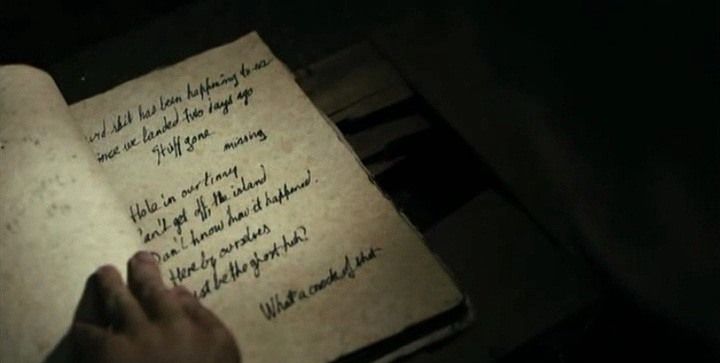 shit has been happening to us
since we landed two days ago
Stuff gone
missing
Hole in our tinny
can't get off the island
Don't know how it happened.
Here by ourselves
be the ghost huh?
What a crock of shit